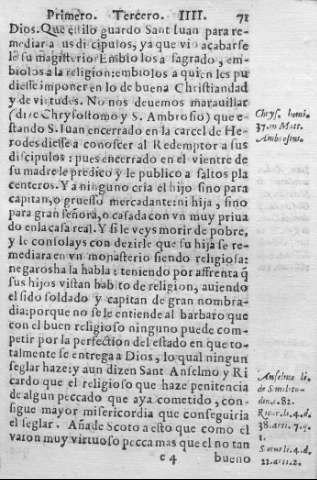 Primero. Tercero. IIII. 71
Dios. Que estilo guardo Sant Iuan para re-
mediar a us discipulos, ya que vio acabarse
le su magisterio? Embio los a sagrado, em-
biolos a la religion: embiolos a quien les pu
diesse imponer en lo de buena Christiandad
y de virtudes. No nos deuemos marauillar
(dize Chrysostomo y S. Ambrosio) que e-
stando S. Iuan encerrado en la carcel de He-
rodes diesse a conoscer al Redemptor a sus
discipulos: pues encerrado en el vientre de
su madre le predico y le publico a saltos pla
centeros. Ya ninguno cria el hijo sino para
capitan, o gruesso mercadante: ni hija, sino
para gran señora, o casada con vn muy priua
do en la casa real. Y si le veys morir de pobre,
y le consolays con dezirle que su hija se re-
mediara en vn monasterio siendo religiosa:
negaros ha la habla: teniendo por affrenta q̃
sus hijos vistan habito de religion, auiendo
el sido soldado y capitan de gran nombra-
dia: porque no se le entiende al barbaro que
con el buen religioso ninguno puede com-
petir por la perfection del estado en que to-
talmente se entrega a Dios, lo qual ningun
seglar haze: y aun dizen Sant Anselmo y Ri
cardo que el religioso que haze penitencia
de algun peccado que aya cometido, con-
sigue mayor misericordia que conseguiria
el seglar. Añade Scoto a esto que como el
varon muy virtuoso pecca mas que el no tan
c 4 bueno
Chrys. homi.
37. in Matt.
Ambrosius.
Anselmo li.
de Similitu-
din. c. 82.
Ricar. li. 4. d.
38. ar. 7. q.
1.
Scotus li. 4. d.
22. ar. 2.